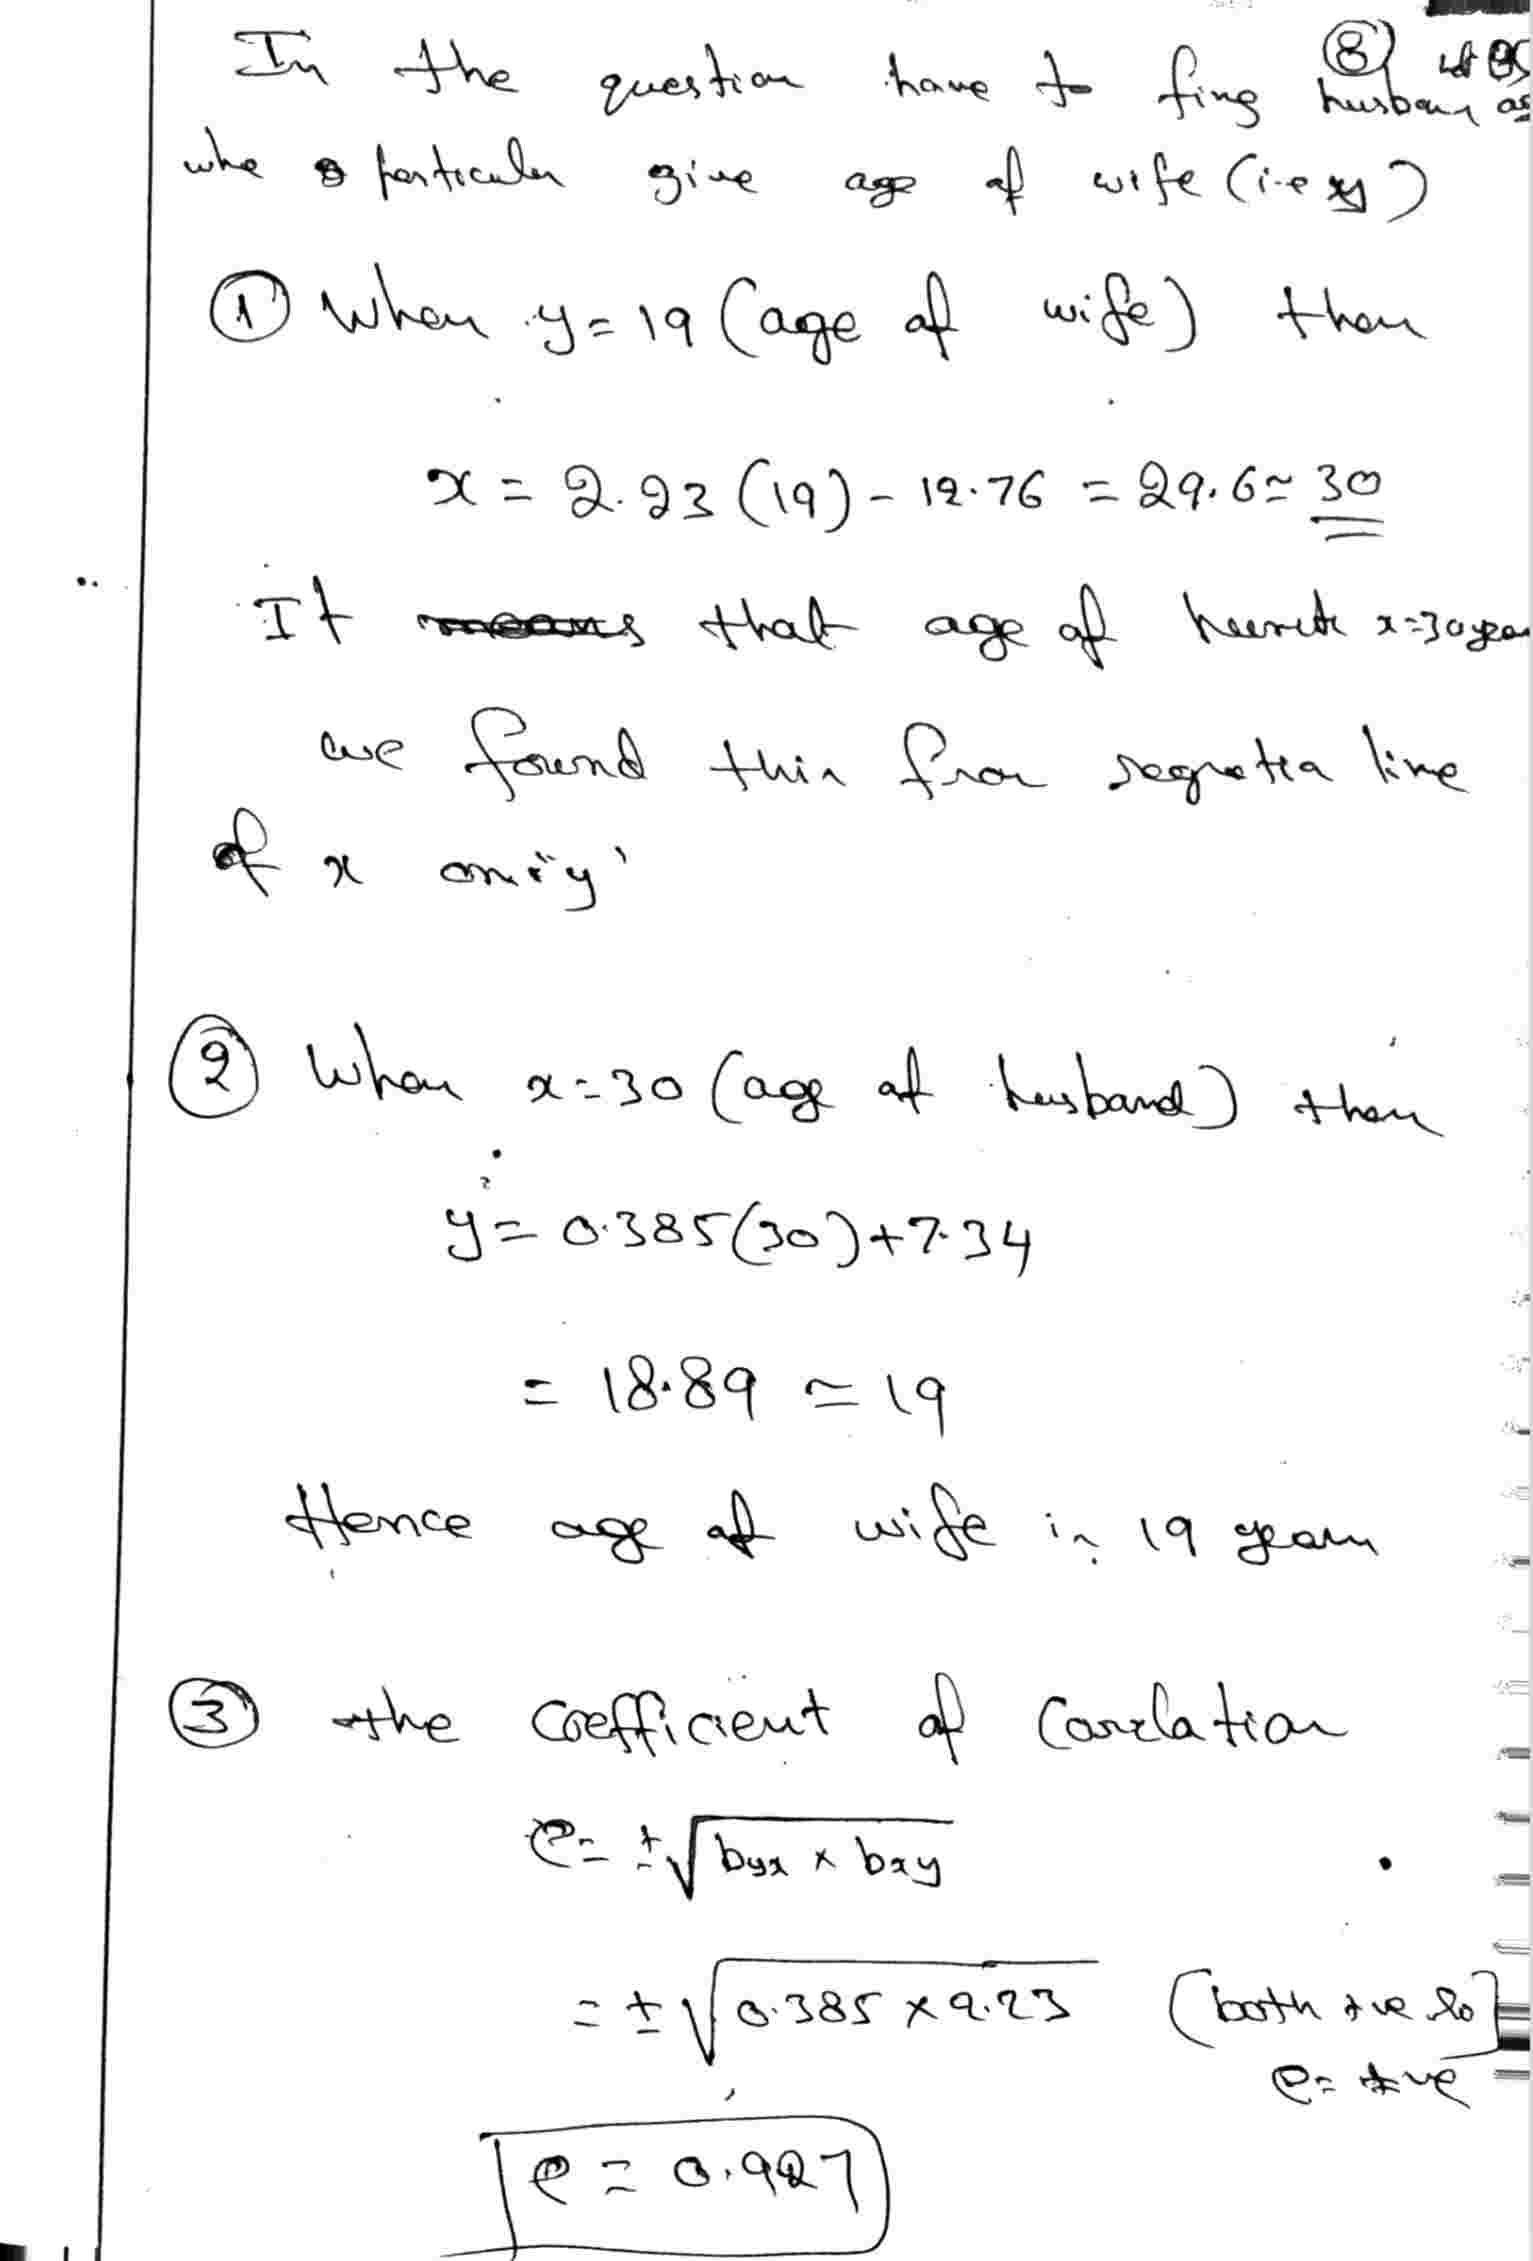 8
In the question have to fing husban ag
whe particular give age of wife (i-e xy)
① When y = 19 (age of wife) then
x = 2.23 (19) - 12.76 = 29.6 ≃ 30
It means that age of x=30 year
we found this from line
of x on "y"
② When x = 30 (age of husband) then
y = 0.385(30)+7.34
= 18.89 ≃ 19
Hence age of wife is 19 years
③ the coefficient of Correlation
e = ±√byx × bxy
= ±√0.385 × 2.23 (both +ve so
e = +ve
e = 0.927